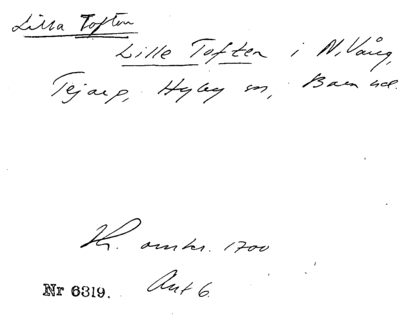 Lilla Toften
Lille Toften i N. Vång,
Tejarp, Hyby sn, Bara hd.
Kr. omkr. 1700
Ant 6.
Nr 6319.